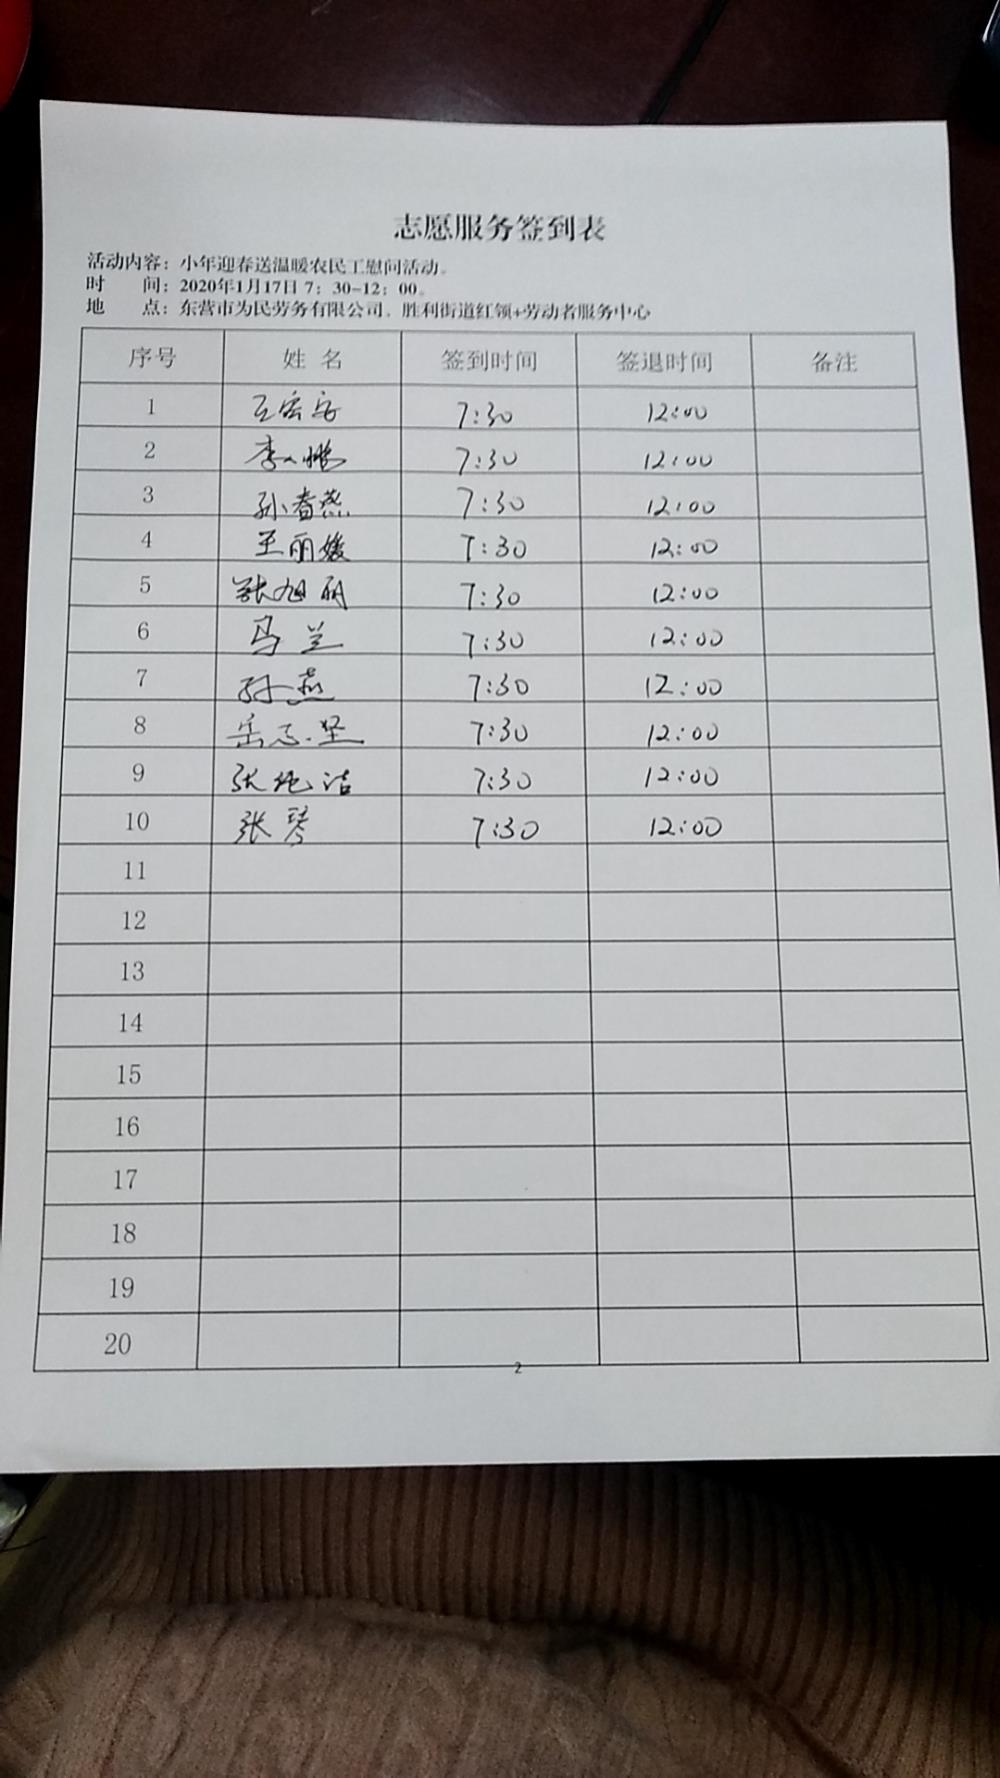 志愿服务签到表
活动内容：小年迎春送温暖农民工慰问活动。
时 间：2020年1月17日 7：30-12：00。
地 点：东营市为民劳务有限公司、胜利街道红领+劳动者服务中心
序号 姓 名 签到时间 签退时间 备注
1 王宏安 7:30 12:00
2 李 鹏 7:30 12:00
3 孙春燕 7:30 12:00
4 王丽媛 7:30 12:00
5 张旭丽 7:30 12:00
6 马兰 7:30 12:00
7 孙燕 7:30 12:00
8 岳志坚 7:30 12:00
9 张纯洁 7:30 12:00
10 张琴 7:30 12:00
11
12
13
14
15
16
17
18
19
20
2